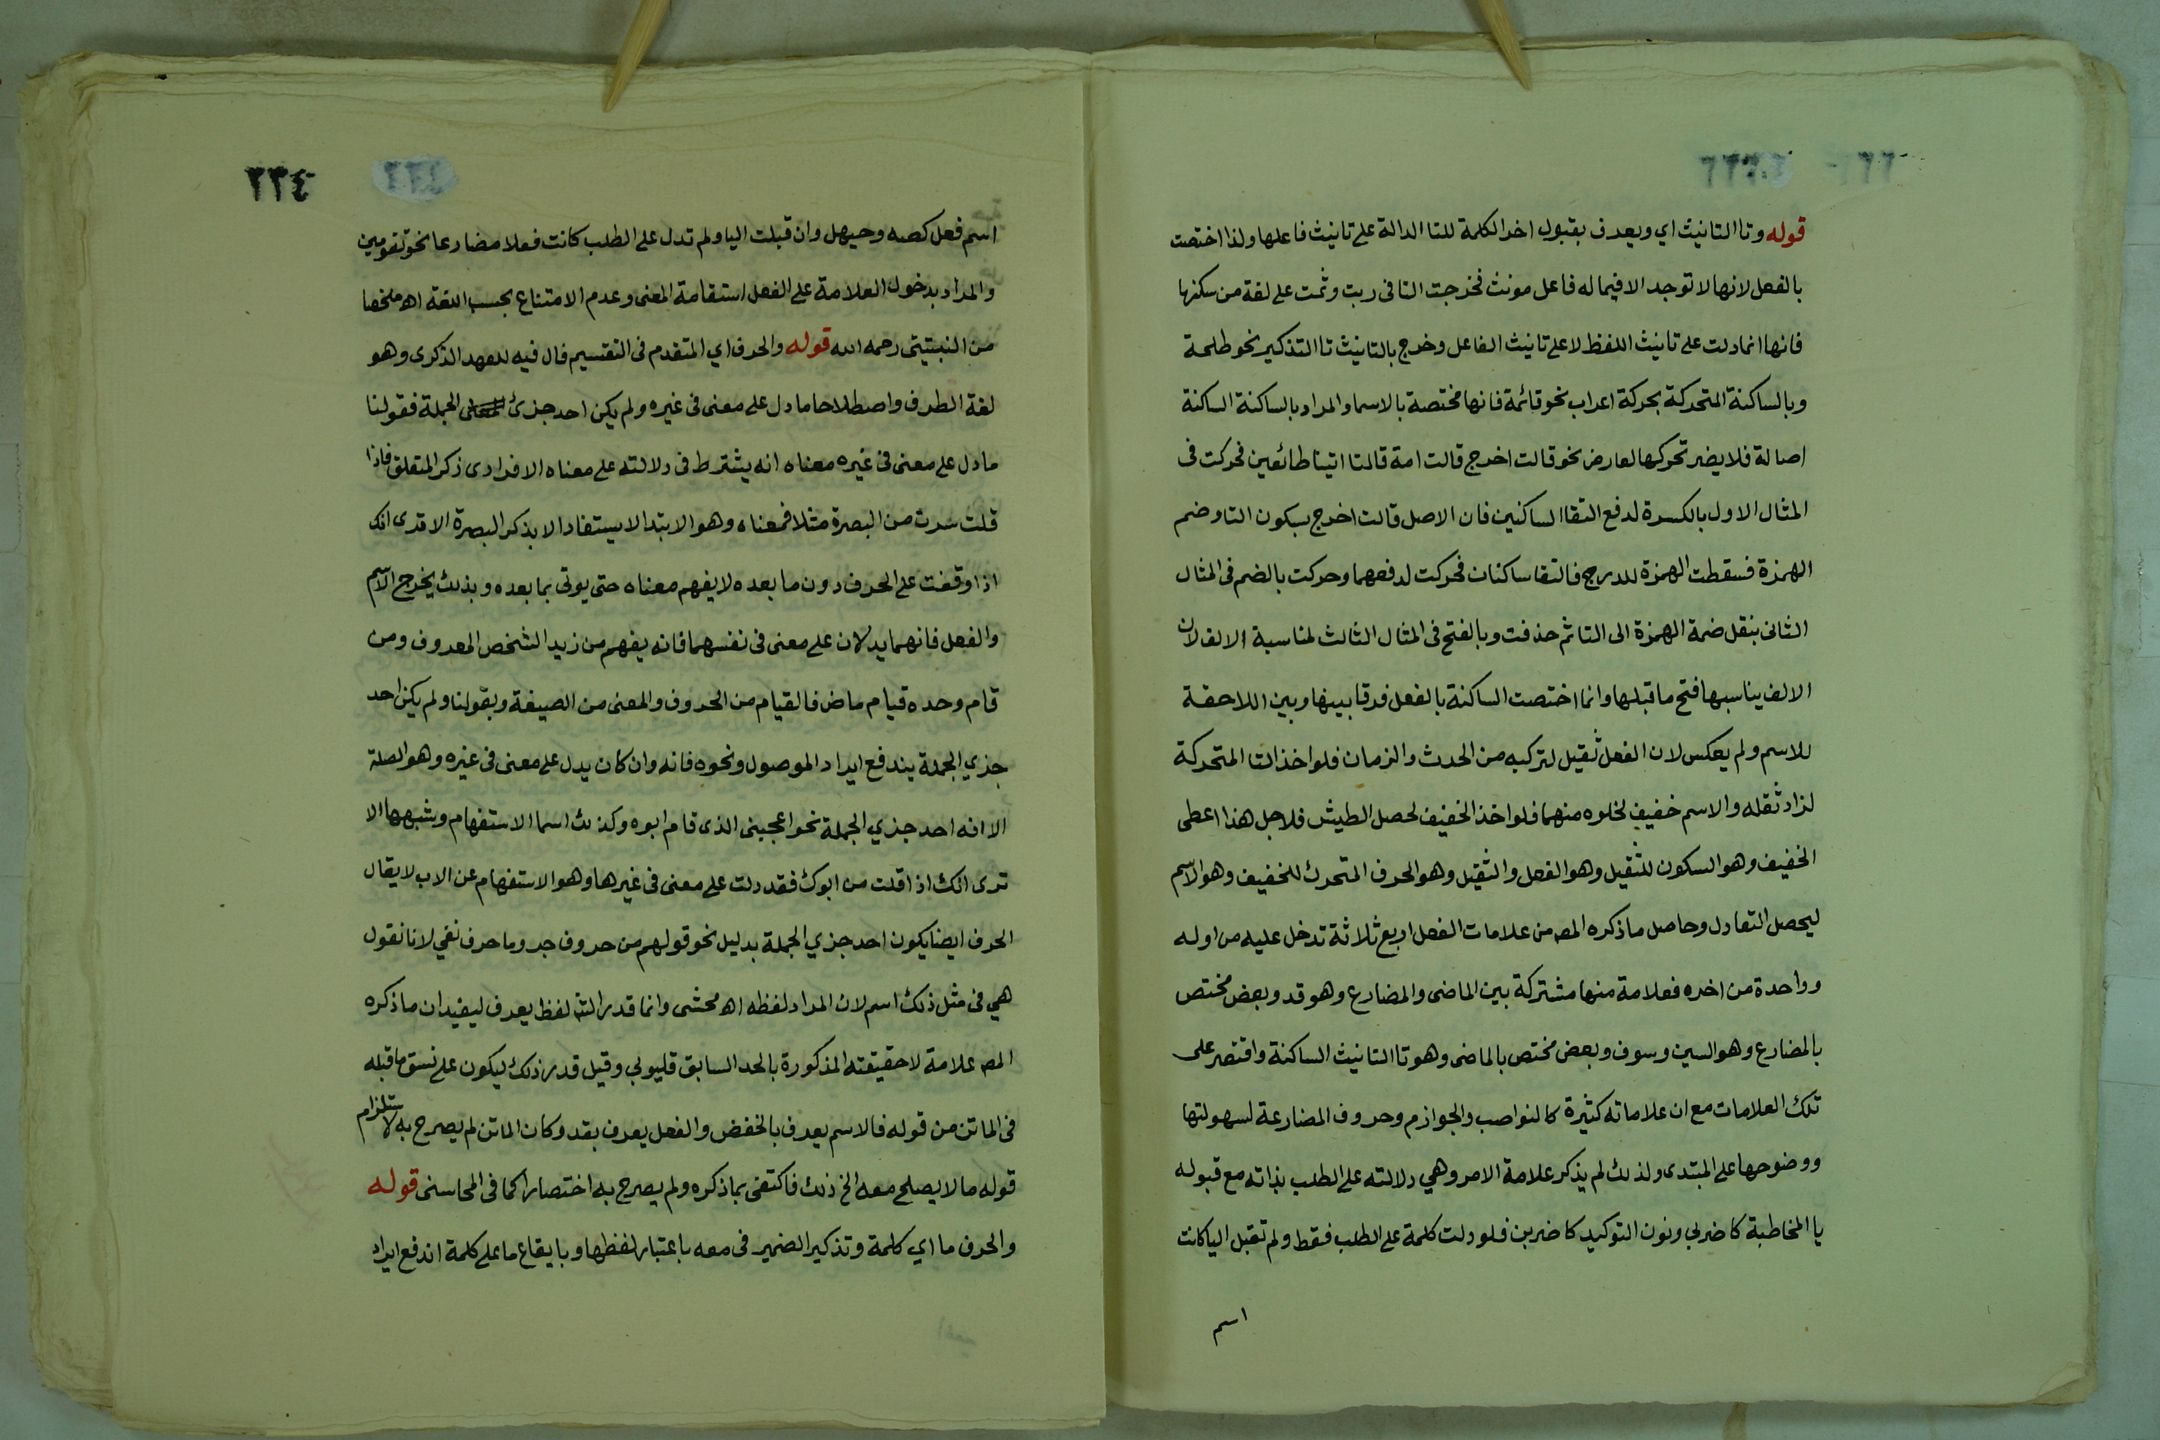 قوله وتا التانيث اي ويعرف بقبول اخر الكلمة للتا الدالة على تانيث فاعلها ولذا اختصت
بالفعل لانها لا توجد الا فيما له فاعل مونث فخرجت التا فى ربت وثمت على لغة من سكنها
فانها انما دلت على تانيث اللفظ لا على تانيث الفاعل وخرج بالتانيث تا التذكير نحو طلحة
وبالساكنة المتحركة بحركة اعراب نحو قائمة فانها مختصة بالاسما والمراد بالساكنة الساكنة
اصالة فلا يضر تحركها لعارض نحو قالت اخرج قالت امة قالتا اتينا طائعين فحركت فى
المثال الاول بالكسرة لدفع التقا الساكنين فان الاصل قالت اخرج بسكون التا وضم
الهمزة فسقطت الهمزة للدرج فالتقا ساكنان فحركت لدفعهما وحركت بالضم فى المثال
الثانى بنقل ضمة الهمزة الى التا ثم حذفت وبالفتح فى المثال الثالث لمناسبة الالف لان
الالف يناسبها فتح ما قبلها وانما اختصت الساكنة بالفعل فرقا بينها وبين اللاحقة
للاسم ولم يعكس لان الفعل ثقيل لتركبه من الحدث والزمان فلو اخذات المتحركة
لزاد ثقله والاسم خفيف لخلوه منهما فلو اخذ الخفيف لحصل الطيش فلاجل هذا اعطى
الخفيف وهو السكون للثقيل وهو الفعل والثقيل وهو الحرف المتحرك للخفيف وهو الاسم
ليحصل التعادل وحاصل ما ذكره المص من علامات الفعل اربع ثلاثة تدخل عليه من اوله
وواحدة من اخره فعلامة منها مشتركة بين الماضى والمضارع وهو قد وبعض مختص
بالمضارع وهو السين وسوف وبعض مختص بالماضى وهو تا التانيث الساكنة واقتصر على
تلك العلامات مع ان علاماته كثيرة كالنواصب والجوازم وحروف المضارعة لسهولتها
ووضوحها على المبتدى ولذلك لم يذكر علامة الامر وهي دلالته على الطلب بذاته مع قبوله
يا المخاطبة كاضربي ونون التوكيد كاضربن فلو دلت كلمة على الطلب فقط ولم تقبل اليا كانت
اسم
٢٣٤
اسم فعل كصه وحيهل وان قبلت اليا ولم تدل على الطلب كانت فعلا مضارعا نحو تقومين
والمراد بدخول العلامة على الفعل استقامة المعنى وعدم الامتناع بحسب اللغة اه ملخصا
من النبتيتى رحمه الله قوله والحرف اي المتقدم فى التقسيم فال فيه للعهد الذكرى وهو
لغة الطرف واصطلاحا ما دل على معنى فى غيره ولم يكن احد جزئ الجملة فقولنا
ما دل على معنى فى غيره معناه انه يشترط فى دلالته على معناه الافرادى ذكر المتعلق فاذا
قلت سرت من البصرة مثلا فمعناه وهو الابتدا لا يستفاد الا بذكر البصرة الا قدى انك
اذا وقفت على الحرف دون ما بعده لا يفهم معناه حتى يوتى بما بعده وبذلك يخرج الاسم
والفعل فانهما يدلان على معنى فى نفسهما فانه يفهم من زيد الشخص المعروف ومن
قام وحده قيام ماض فالقيام من الحروف والمعنى من الصيغة وبقولنا ولم يكن احد
جزي الجملة يندفع ايراد الموصول ونحوه فانه وان كان يدل على معنى فى غيره وهو الصلة
الا انه احد جزي الجملة نحو اعجبنى الذى قام ابوه وكذلك اسما الاستفهام وشبهها الا
ترى انك اذا قلت من ابوك فقد دلت على معنى فى غيرها وهو الاستفهام عن الاب لا يقال
الحرف ايضا يكون احد جزي الجملة بدليل نحو قولهم من حروف جر وما حرف نفي لانا نقول
هي فى مثل ذلك اسم لان المراد لفظه اه محشى وانما قدر الش لفظ يعرف ليفيد ان ما ذكره
المص علامة لا حقيقته المذكورة بالحد السابق قليوبي وقيل قدر ذلك ليكون على نسق ما قبله
فى الماتن من قوله فالاسم يعرف بالخفض والفعل يعرف بقد وكان الماتن لم يصرح به لاستلزام
قوله ما لا يصلح معه الخ ذلك فاكتفى بما ذكره ولم يصرح به اختصارا كما فى المحاسنى قوله
والحرف ما اي كلمة وتذكير الضمير فى معه باعتبار لفظها وبايقاع ما على كلمة اندفع ايراد